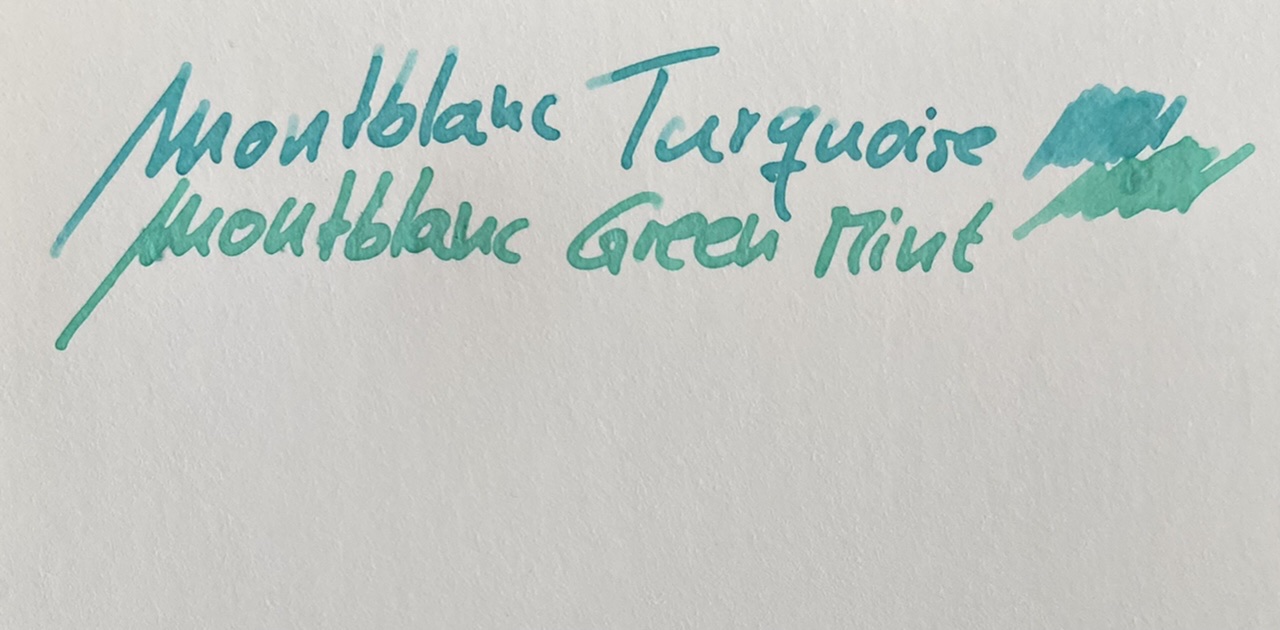 Montblanc Turquoise
Montblanc Green Mint